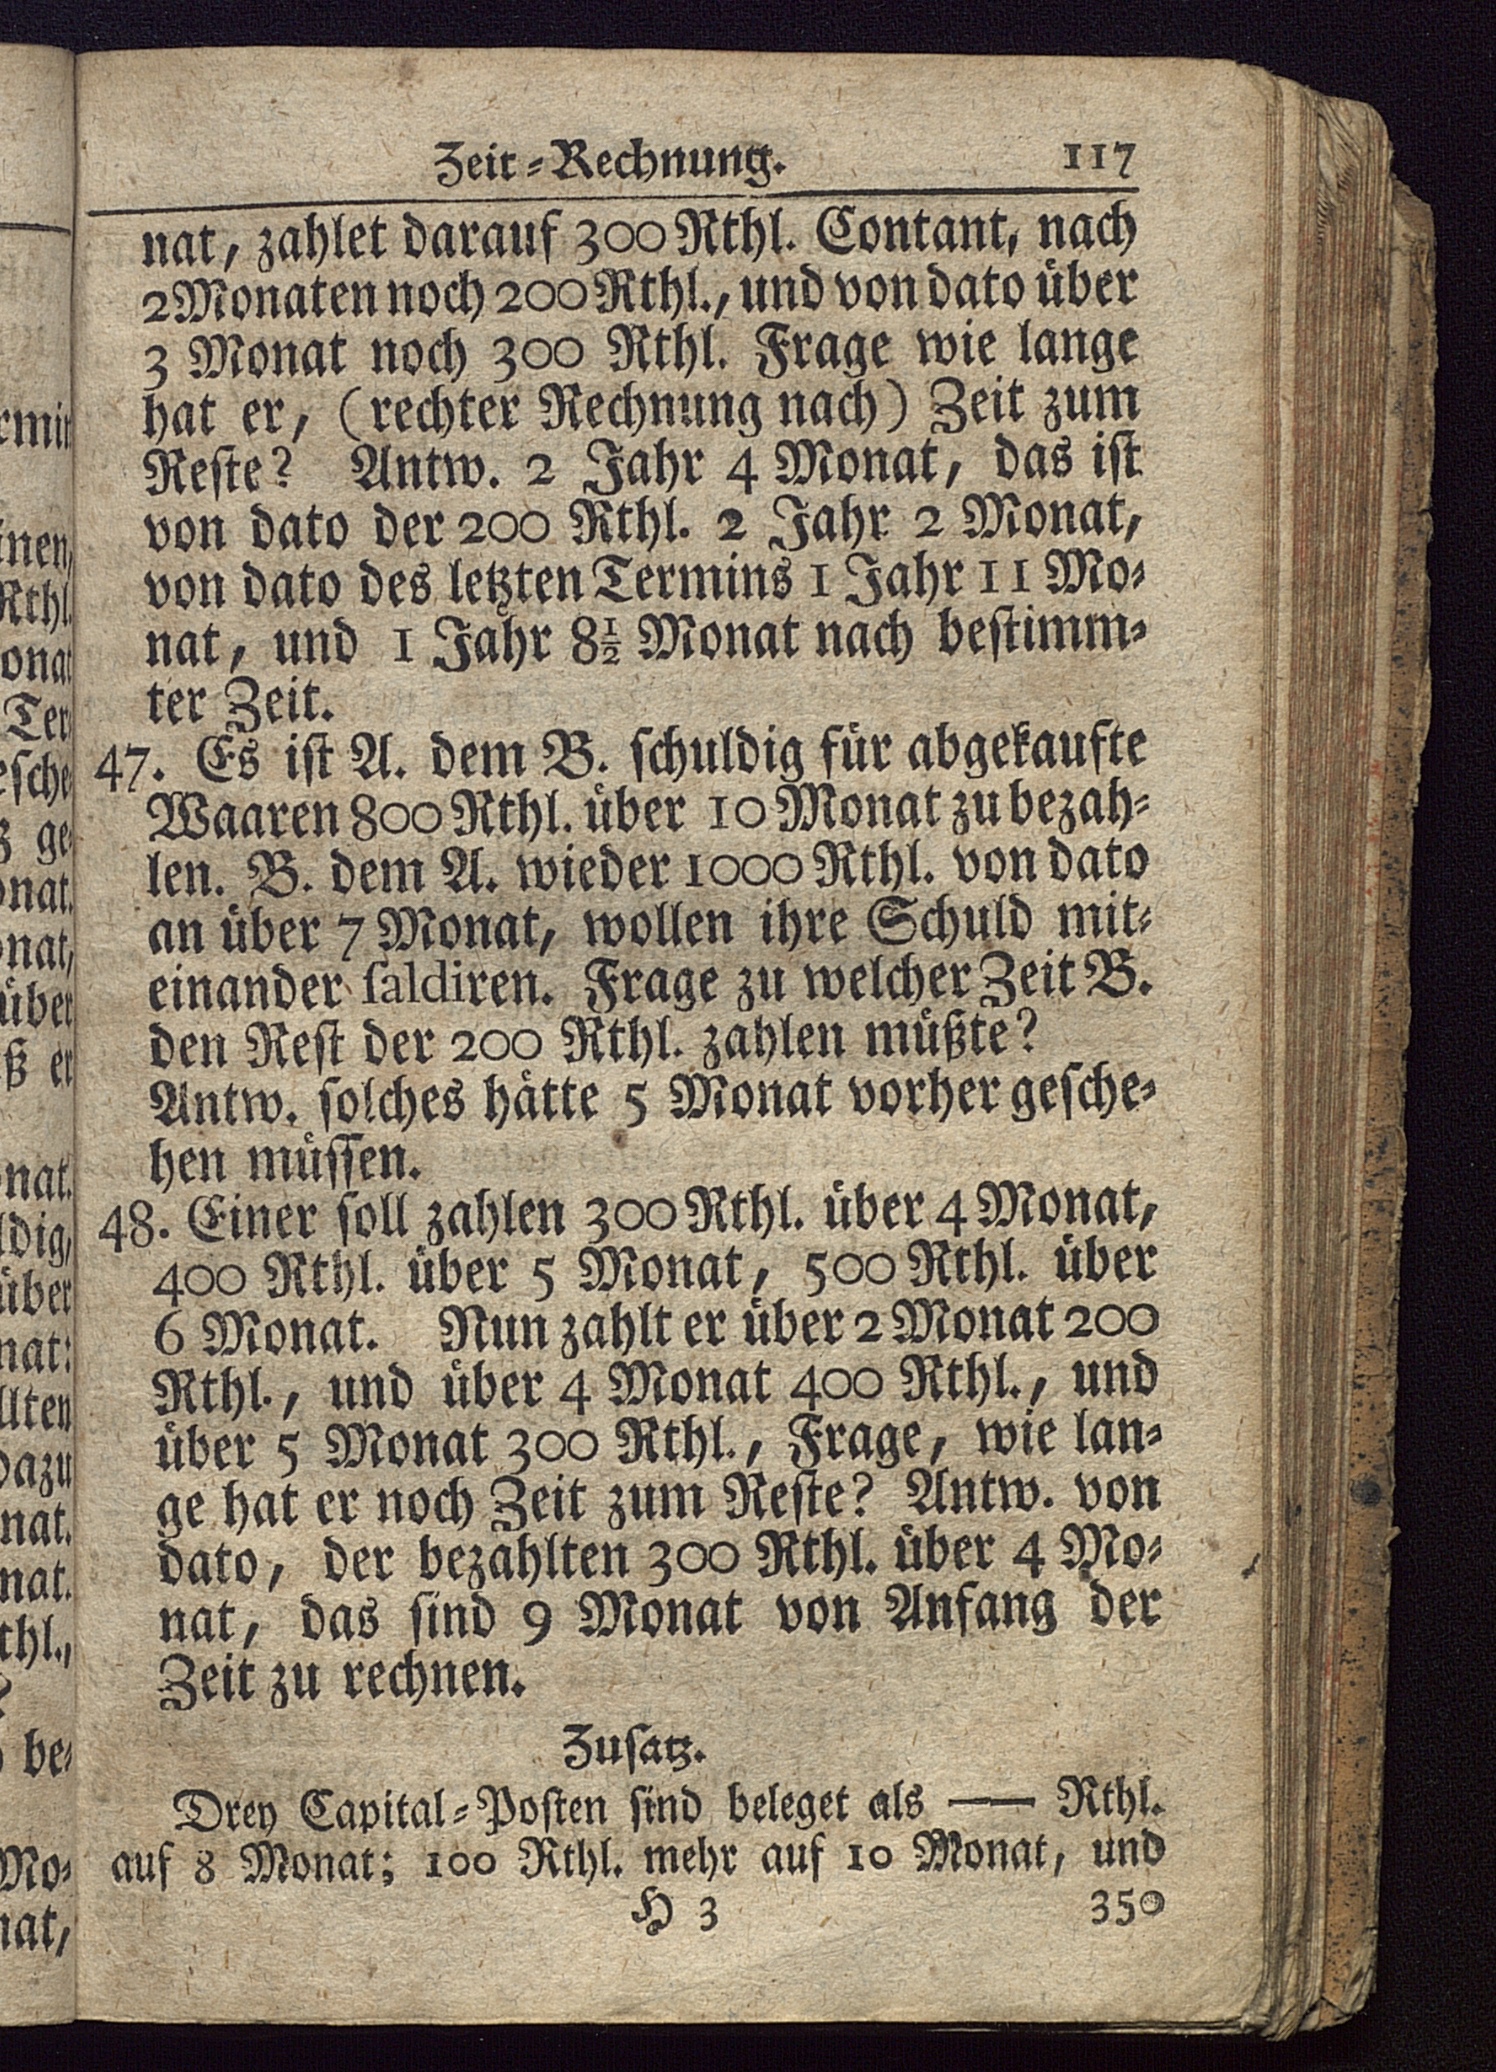 Zeit-Rechnung. 117
nat, zahlet darauf 300 Rthl. Contant, nach
2 Monaten noch 200 Rthl., und von dato über
3 Monat noch 300 Rthl. Frage wie lange
hat er, (rechter Rechnung nach) Zeit zum
Reste? Antw. 2 Jahr 4 Monat, das ist
von dato der 200 Rthl. 2 Jahr 2 Monat,
von dato des letzten Termins 1 Jahr 11 Mo-
nat, und 1 Jahr 8½ Monat nach bestimm-
ter Zeit.
47. Es ist A. dem B. schuldig für abgekaufte
Waaren 800 Rthl. über 10 Monat zu bezah-
len. B. dem A. wieder 1000 Rthl. von dato
an über 7 Monat, wollen ihre Schuld mit-
einander saldiren. Frage zu welcher Zeit B.
den Rest der 200 Rthl. zahlen müßte?
Antw. solches hätte 5 Monat vorher gesche-
hen müssen.
48. Einer soll zahlen 300 Rthl. über 4 Monat,
400 Rthl. über 5 Monat, 500 Rthl. über
6 Monat. Nun zahlt er über 2 Monat 200
Rthl., und über 4 Monat 400 Rthl., und
über 5 Monat 300 Rthl., Frage, wie lan-
ge hat er noch Zeit zum Reste? Antw. von
dato, der bezahlten 300 Rthl. über 4 Mo-
nat, das sind 9 Monat von Anfang der
Zeit zu rechnen.
Zusatz.
Drey Capital-Posten sind beleget als — Rthl.
auf 8 Monat; 100 Rthl. mehr auf 10 Monat, und
H 3 350